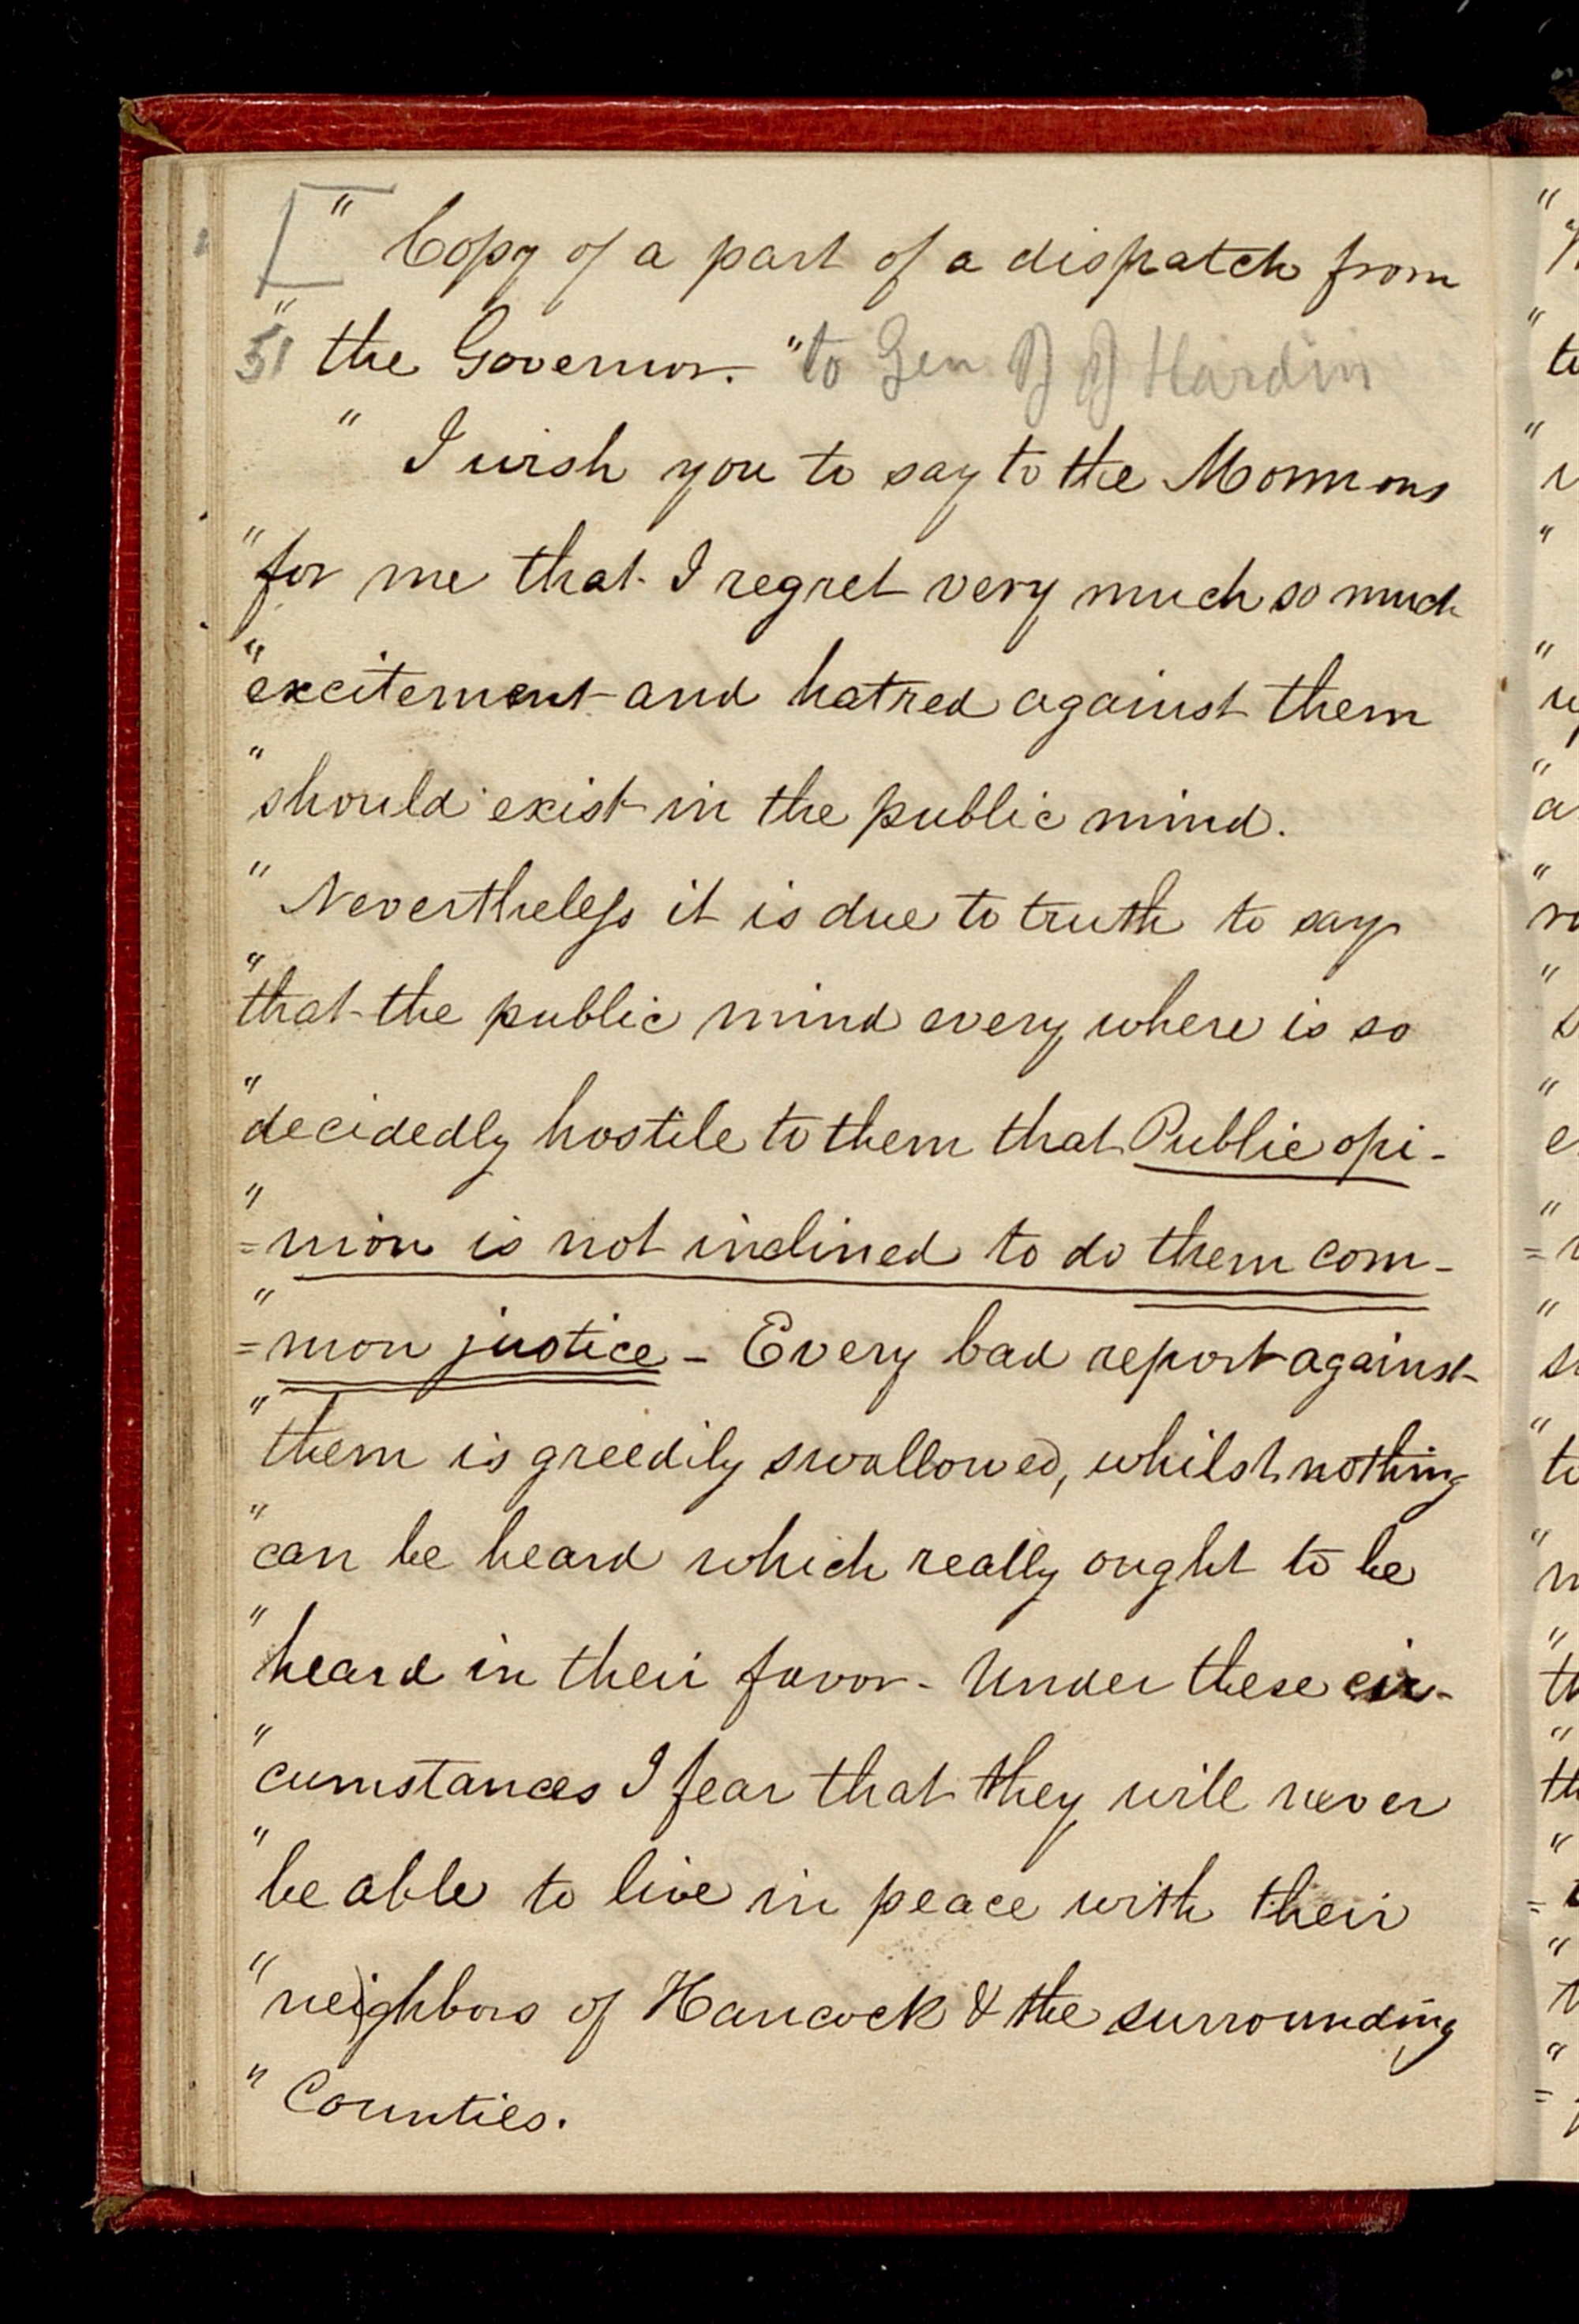 " Copy of a part of a dispatch from
" 51 the Governor. " to Gen J J Hardin
" I wish you to say to the Mormons
" for me that I regret very much so much
" excitement and hatred against them
" should exist in the public mind.
" Nevertheless it is due to truth to say
" that the public mind every where is so
" decidedly hostile to them that Public opi-
" =nion is not inclined to do them com-
" =mon justice - Every bad report against
" them is greedily swallowed, whilst nothing
" can be heard which really ought to be
" heard in their favor - Under these cir-
" cumstances I fear that they will never
" be able to live in peace with their
" neighbors of Hancock & the surrounding
" Counties.